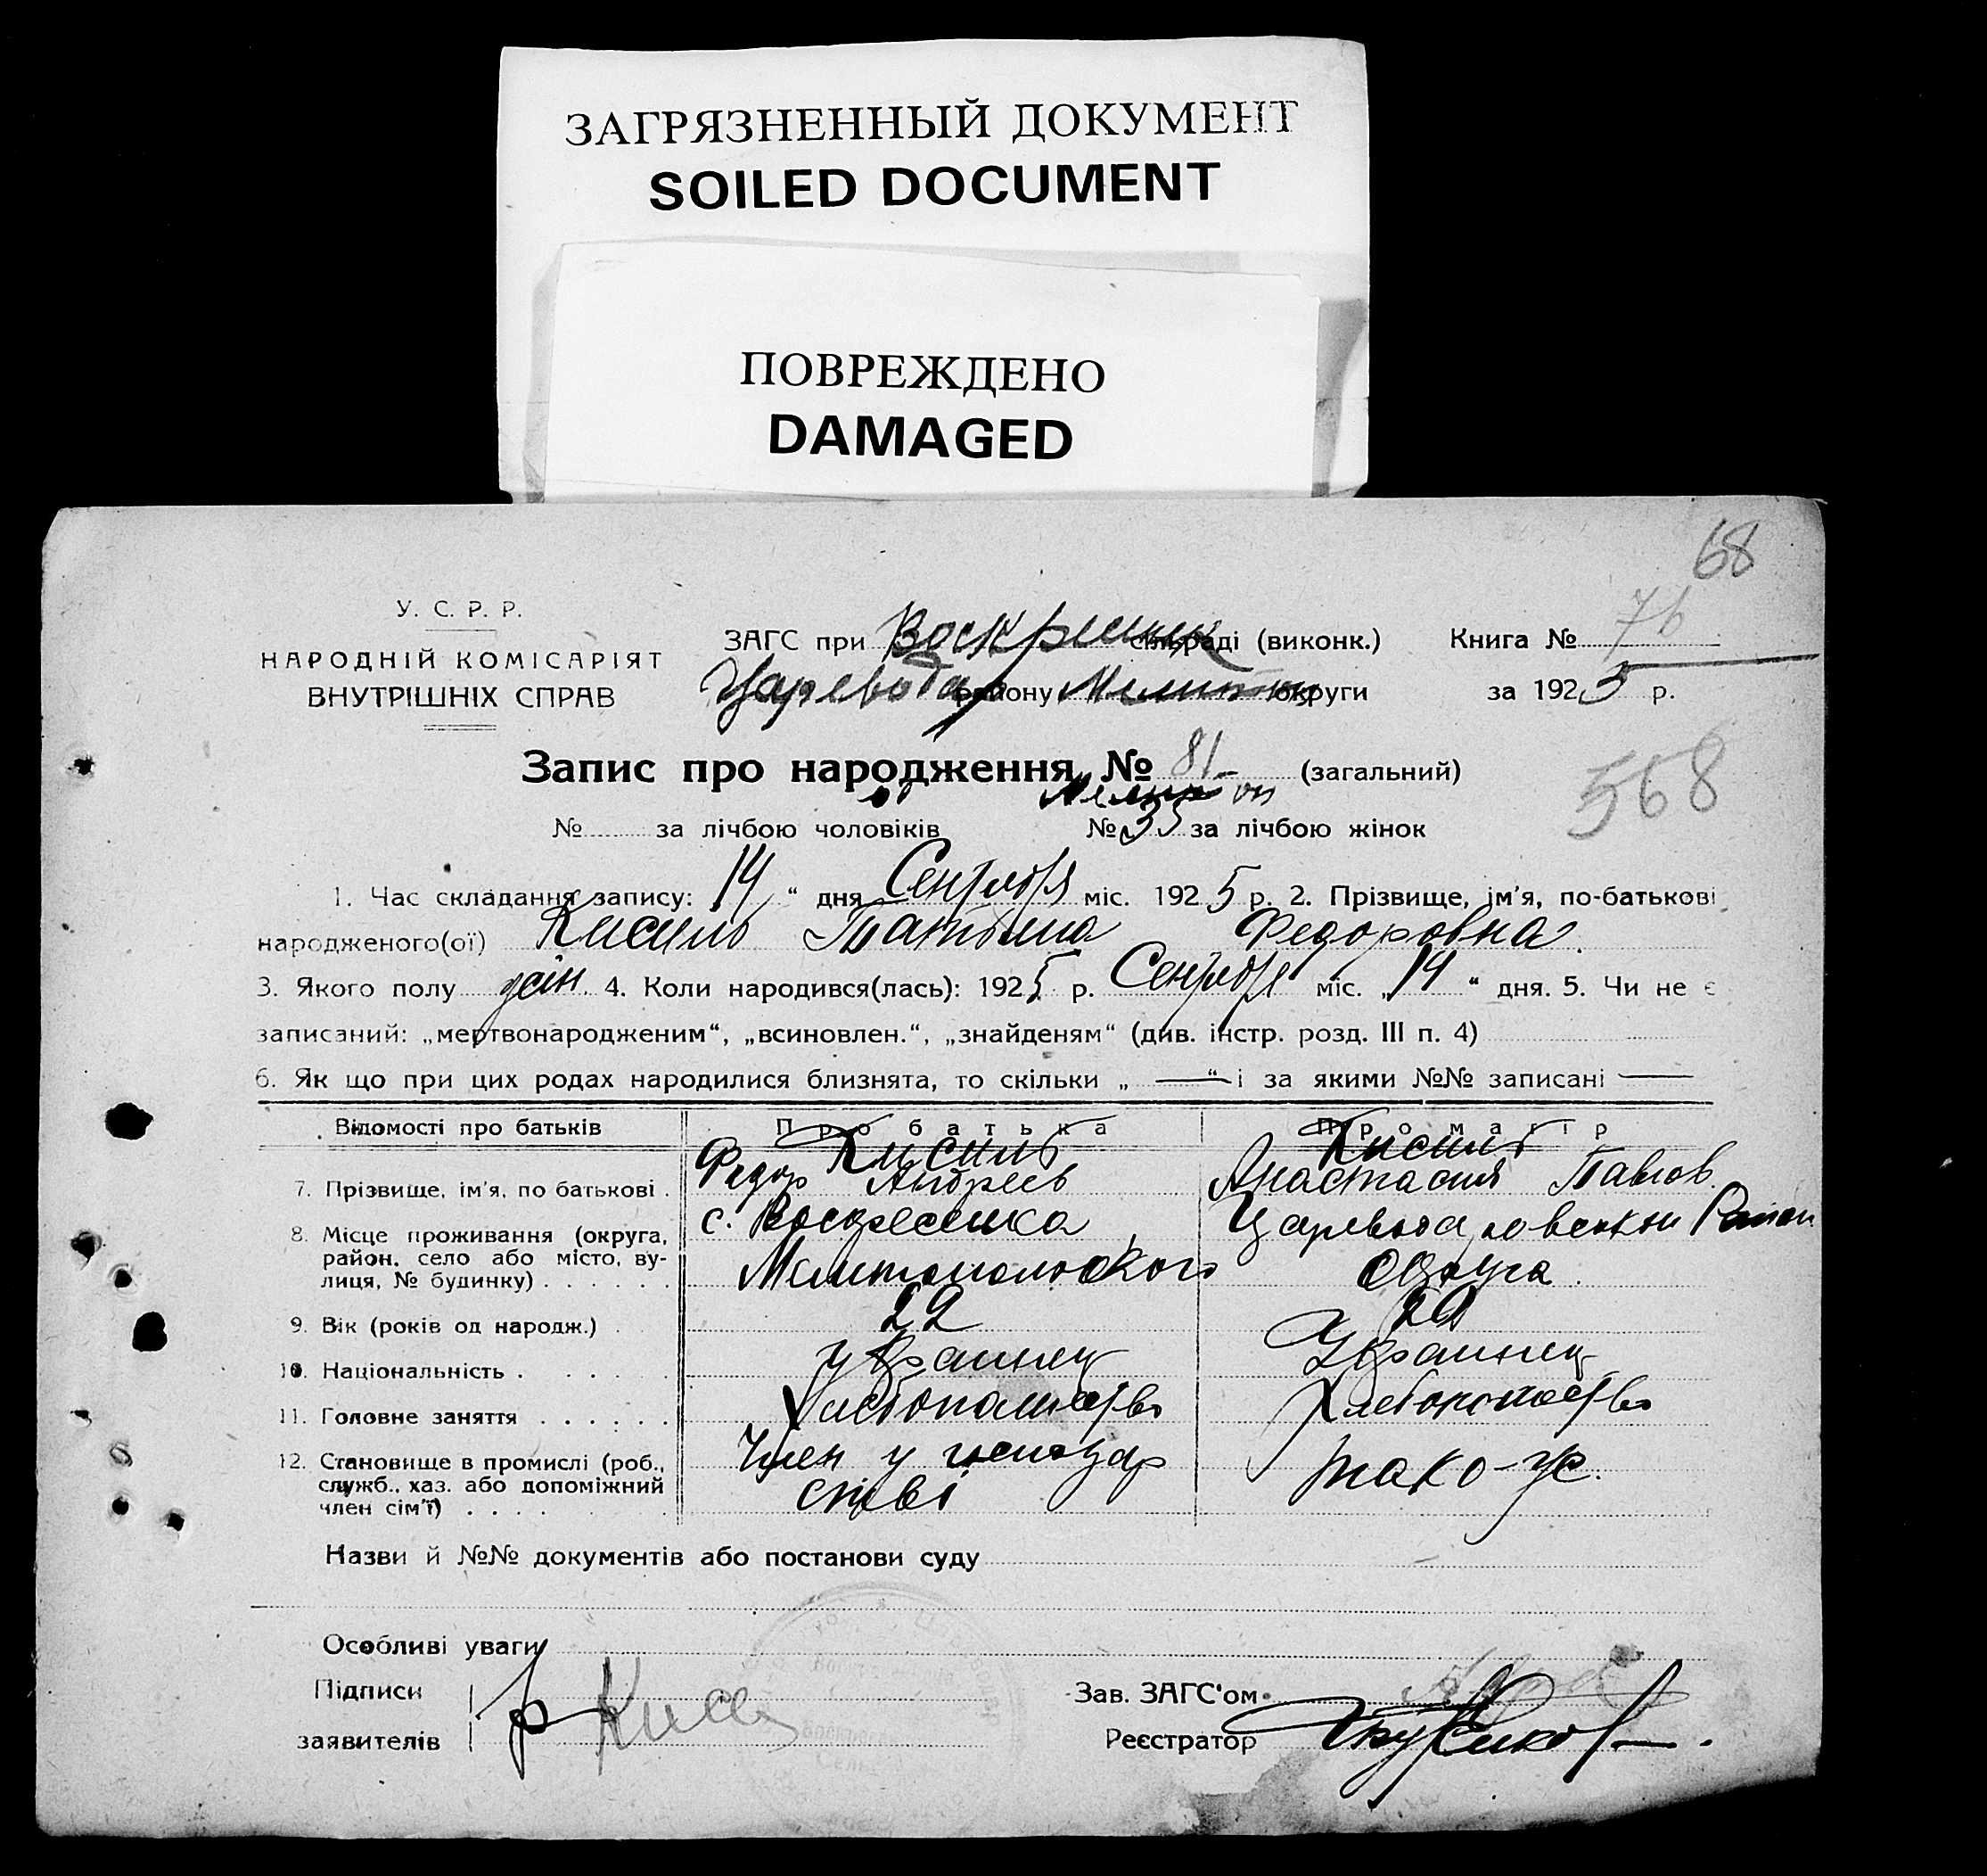 ЗАГРЯЗНЕННЫЙ ДОКУМЕНТ
SOILED DOCUMENT
ПОВРЕЖДЕНО
DAMAGED
68
У. С. Р. Р.
НАРОДНІЙ КОМІСАРІЯТ
ВНУТРІШНІХ СПРАВ
ЗАГС при Воскресенск сільраді (виконк.) Книга № 76
району округи за 1925 р.
Запис про народження № 81 (загальний)
568
№ за лічбою чоловіків № 35 за лічбою жінок
1. Час складання запису: 14 " дня Сентября міс. 1925 р. 2. Прізвище, ім'я, по-батькові
народженого(ої) Кисиль Татьяна Федоровна.
3. Якого полу жін. 4. Коли народився(лась): 1925 р. Сентября міс. „14" дня. 5. Чи не є
записаний: „мертвонародженим", „всиновлен.", „знайденям" (див. інстр. розд. III п. 4)
6. Як що при цих родах народилися близнята, то скільки „ — " і за якими №№ записані —
Відомості про батьків Про батька Про матір
Кисиль Кисиль
7. Прізвище, ім'я, по батькові . Федор Андреев Анастасия Павлов.
8. Місце проживання (округа, район, село або місто, вулиця, № будинку) . . . . . .
с. Воскресенка Район
Мелитопольского округа.
9. Вік (років од народж.) . 22
10. Національність . . . . . Украинец Украинец
11. Головне заняття . . . . . . Хлебопашество Хлебопашество
12. Становище в промислі (роб., служб., хаз. або допоміжний член сім'ї) . . . .
Член у господар
стві тако-же.
Назви й №№ документів або постанови суду
Особливі уваги
Підписи
заявителів Кисе
Зав. ЗАГС'ом
Реєстратор